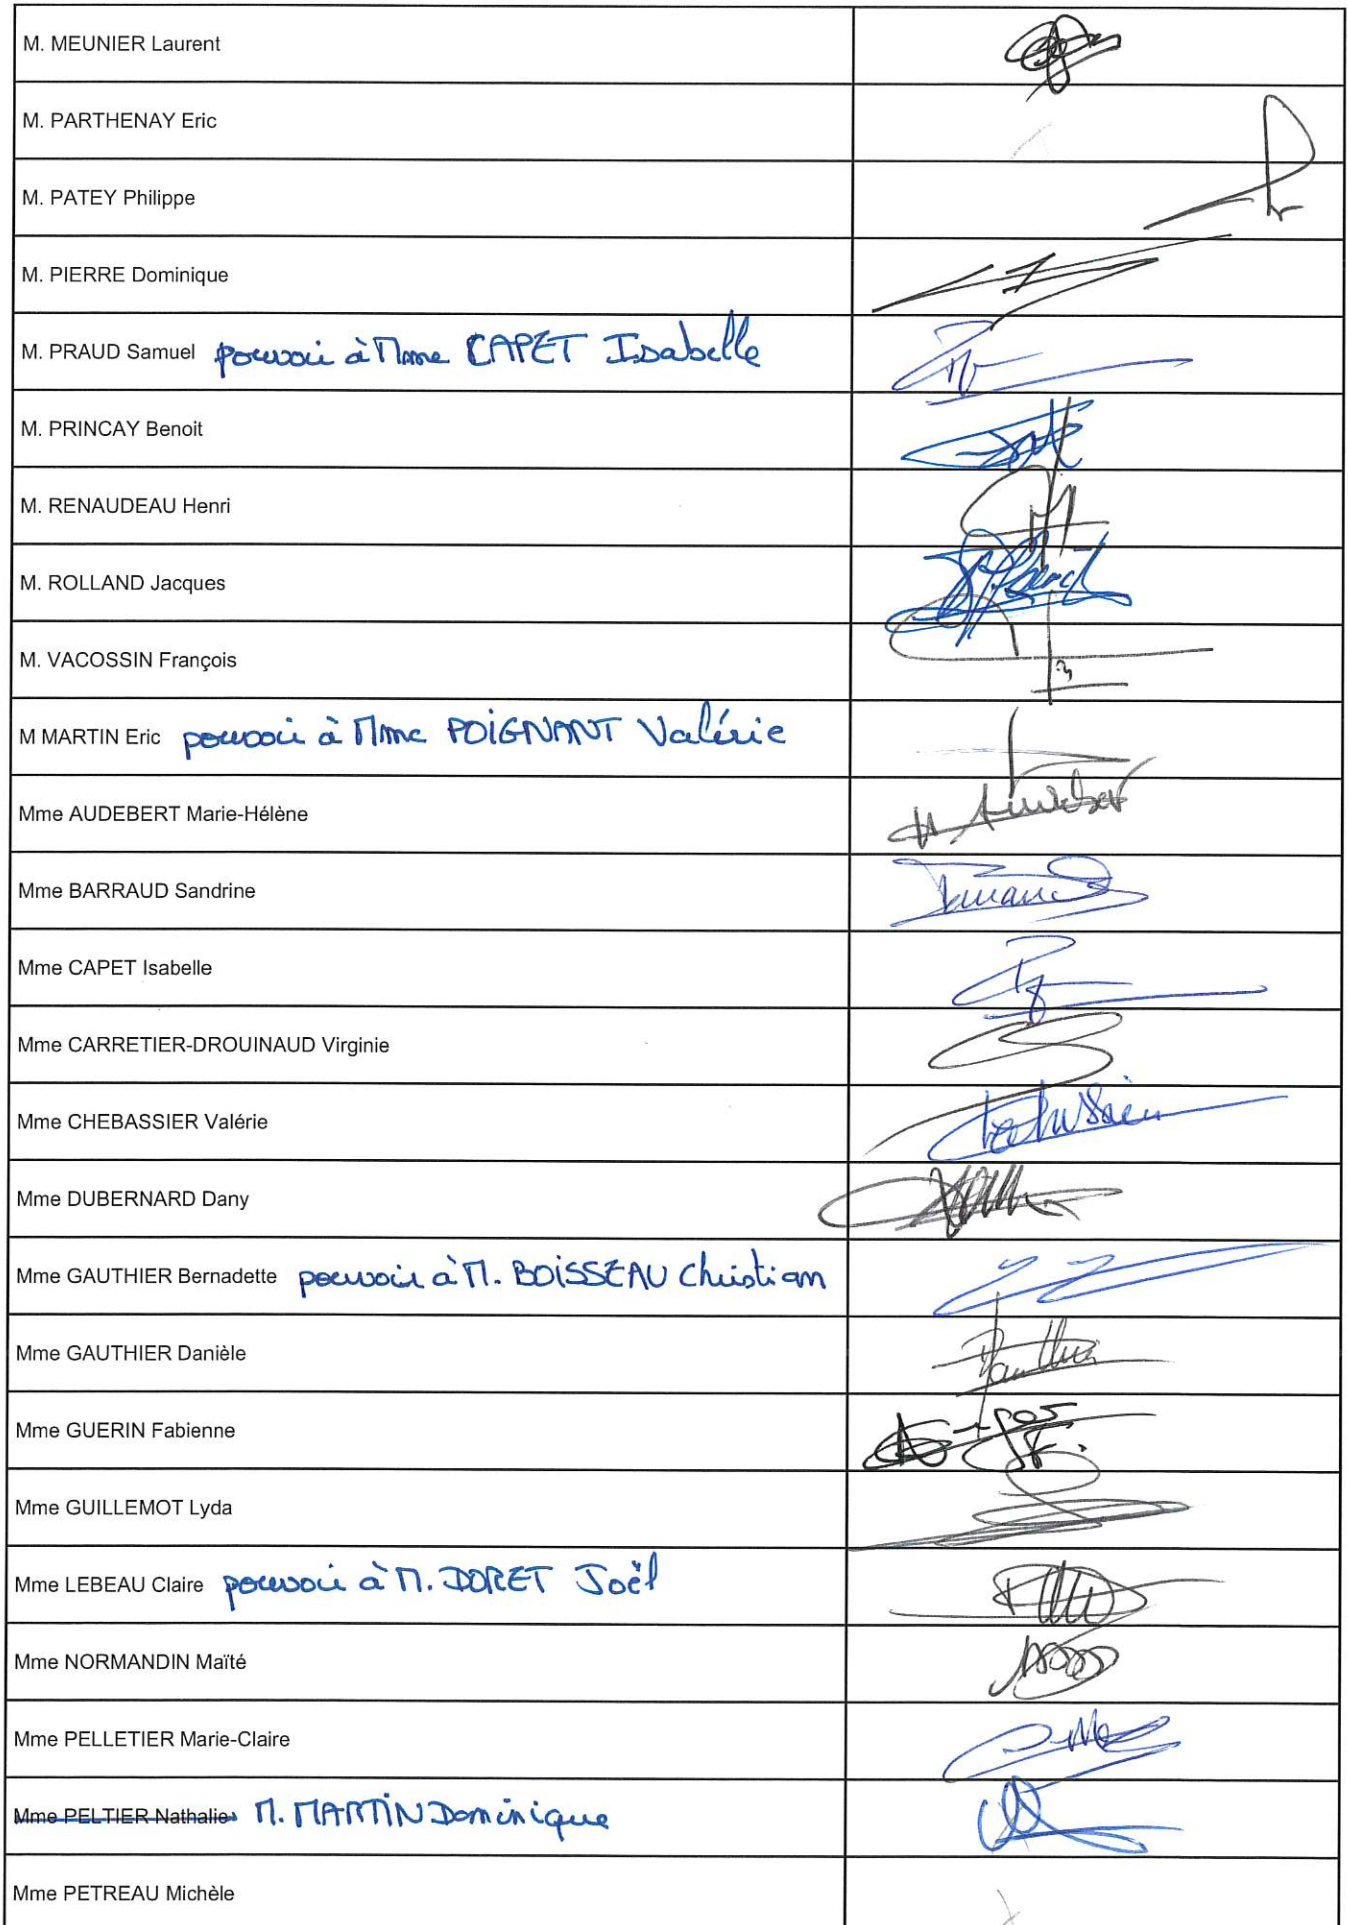 M. MEUNIER Laurent
M. PARTHENAY Eric
M. PATEY Philippe
M. PIERRE Dominique
M. PRAUD Samuel pouvoir à Mme CAPET Isabelle
M. PRINCAY Benoit
M. RENAUDEAU Henri
M. ROLLAND Jacques
M. VACOSSIN François
M MARTIN Eric pouvoir à Mme POIGNANT Valérie
Mme AUDEBERT Marie-Hélène
Mme BARRAUD Sandrine
Mme CAPET Isabelle
Mme CARRETIER-DROUINAUD Virginie
Mme CHEBASSIER Valérie
Mme DUBERNARD Dany
Mme GAUTHIER Bernadette pouvoir à M. BOISSEAU Christian
Mme GAUTHIER Danièle
Mme GUERIN Fabienne
Mme GUILLEMOT Lyda
Mme LEBEAU Claire pouvoir à M. DORET Joël
Mme NORMANDIN Maïté
Mme PELLETIER Marie-Claire
Mme PELTIER Nathalie M. MARTIN Dominique
Mme PETREAU Michèle